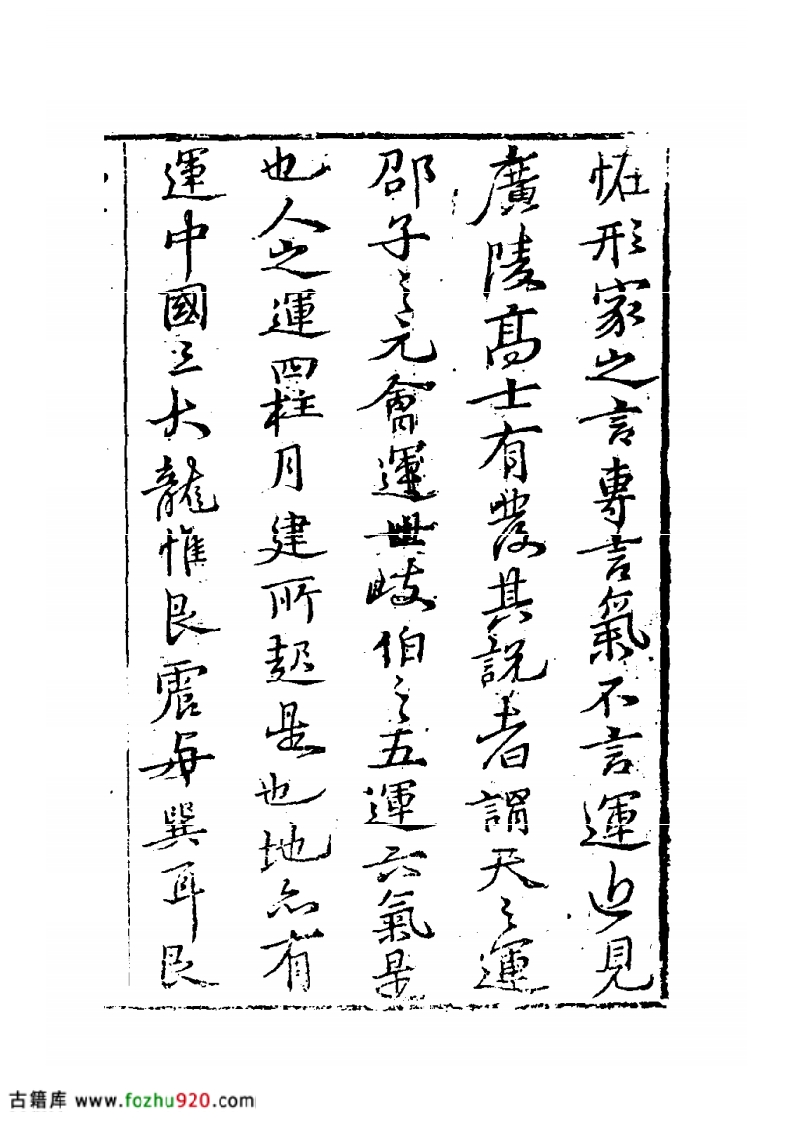 怪形家之言專言氣不言運近見
廣陵高士有發其說者謂天之運
邵子之元會運世歧伯之五運六氣是
也人之運四柱月建所起是也地亦有
運中國三大龍惟艮震與巽耳艮
古籍库 www.fozhu920.com